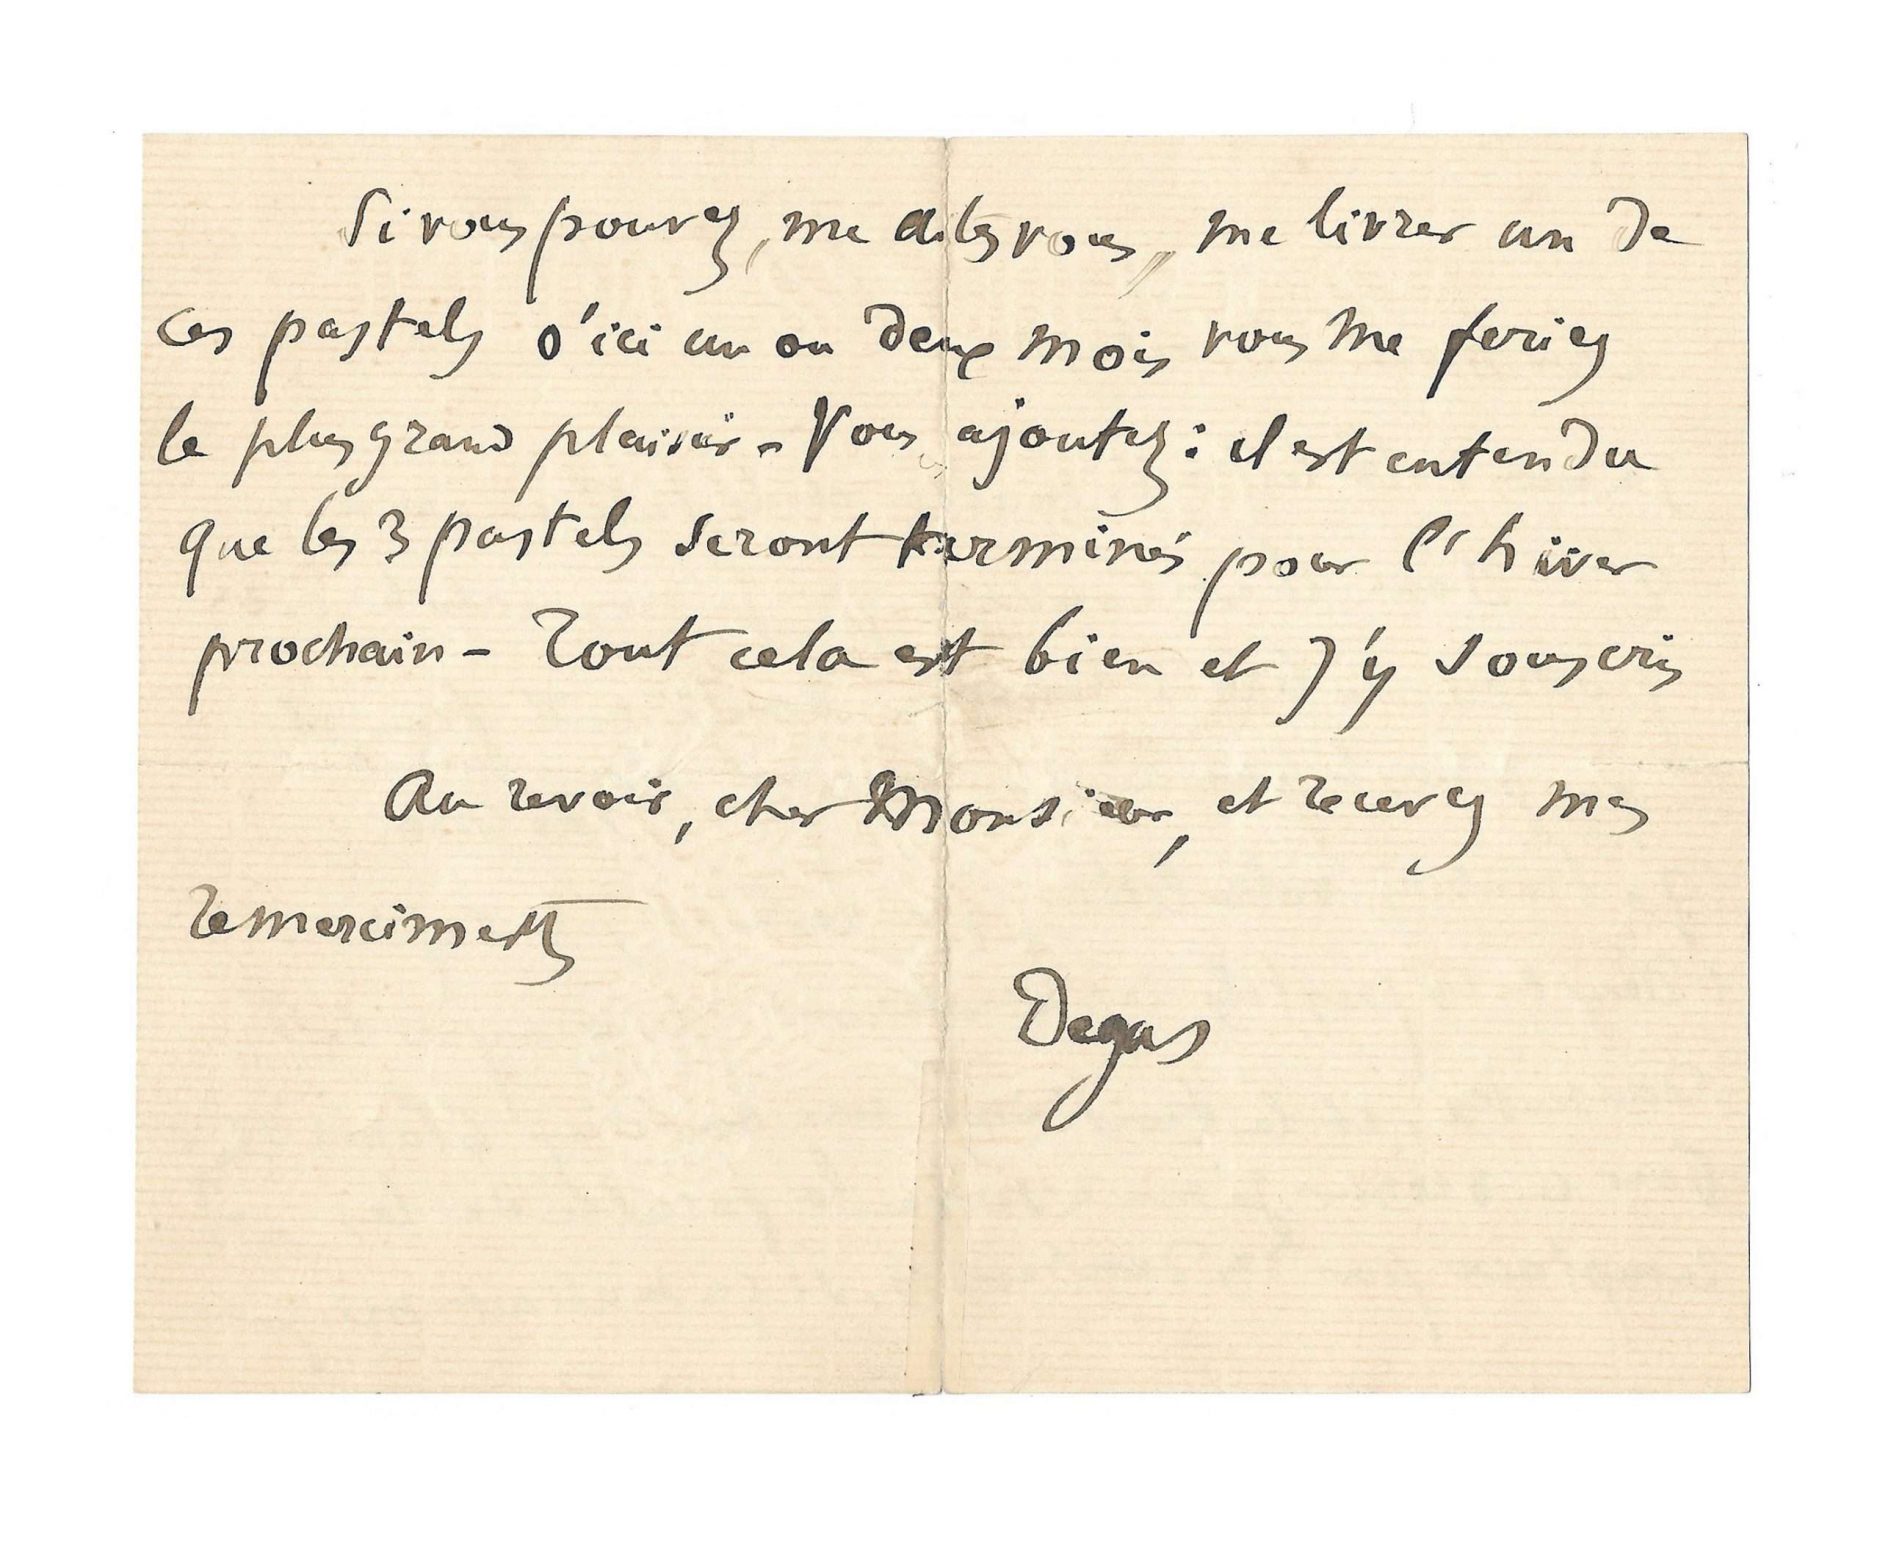 Si vous pouvez, me dites vous, me livrer un de
ces pastels d'ici un ou deux mois vous me feriez
le plus grand plaisir - Vous ajoutez : il est entendu
que les 3 pastels seront terminés pour l'hiver
prochain - Tout cela est bien et j'y souscris
Au revoir, cher Monsieur, et recevez mes
remerciments
Degas